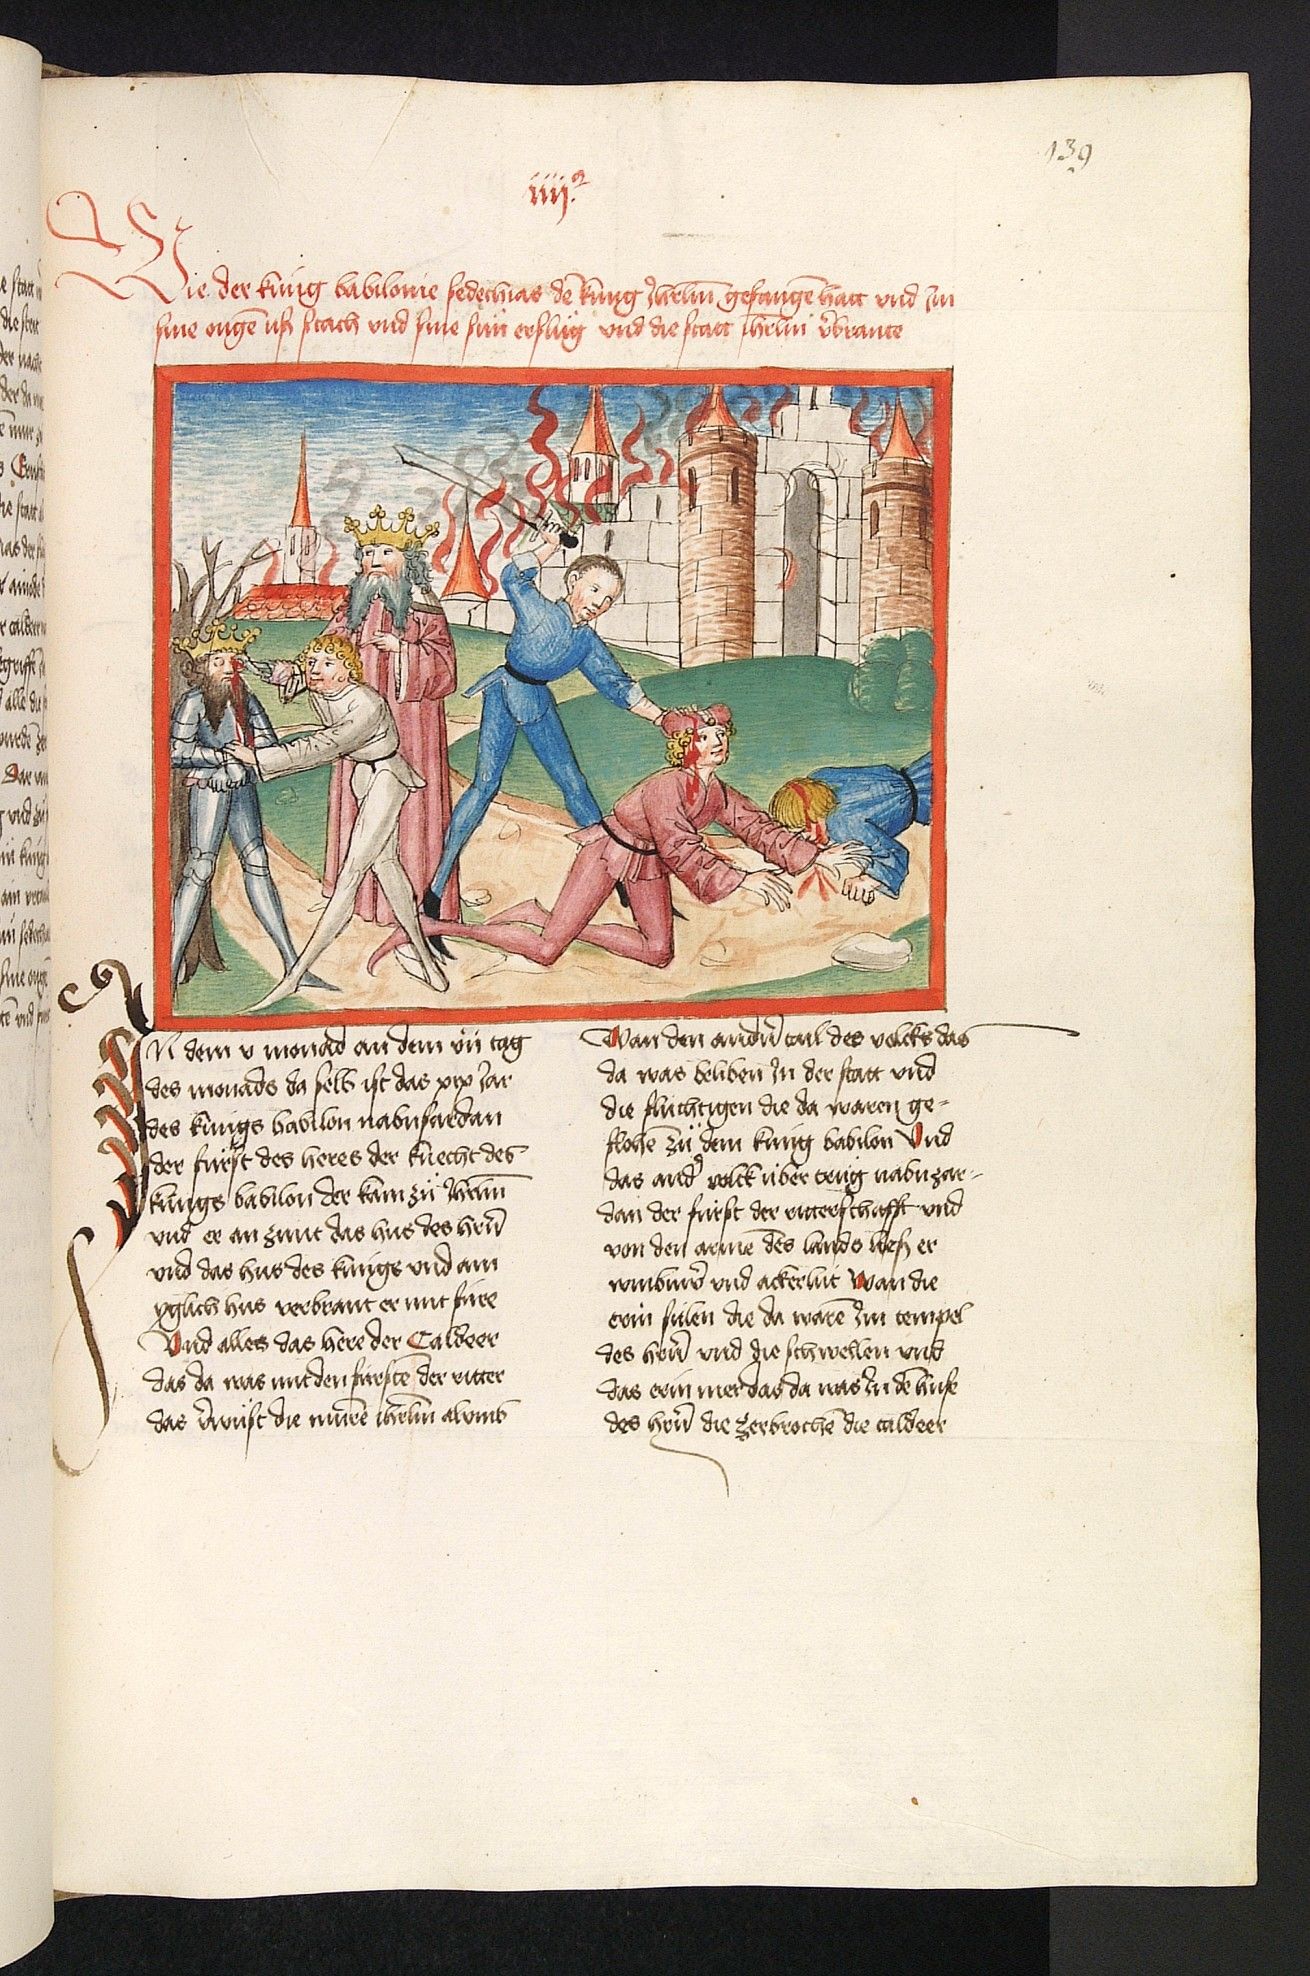 139
iiij.
Wie der kung babilonie sedechias dē kung Jhrlm̄ gefangē hatt vnd Jm
sine ougē uſz ſtach vnd ſine sün erſlůg vnd die ſtatt ihrlm̄ v̄brante
IN dem v monad an dem vii tag
des monads da ſelb iſt das xix Jar
des kungs babilon nabusardan
der fürſt des heres der knecht des
kungs babilon der kam zů Jhrlm̄
vnd er an zunt das hus des hr̄n
vnd das hus des kungs vnd ain
yglich hus verbrant er mit füre
Vnd alles das here der Caldeer
das da was mit den fürſtē der ritter
das v̄wuſt die murē ihrlm̄ alvmb
Wan den andr̄n tail des volcks das
da was beliben Jn der ſtatt vnd
die fluchtigen die da waren ge-
flohē zů dem kung babilon Vnd
das and̄ volck über trůg nabuzar-
dan der fürſt der ritterſchafft vnd
von den armē des lands lieſz er
winburr̄ vnd ackerlüt Wan die
erin ſülen die da warē Jm tempel
des hr̄n vnd die ſchwellen vnd
das erin mer das da was Jn dē huſe
des hr̄n die zerbrochē die caldeer